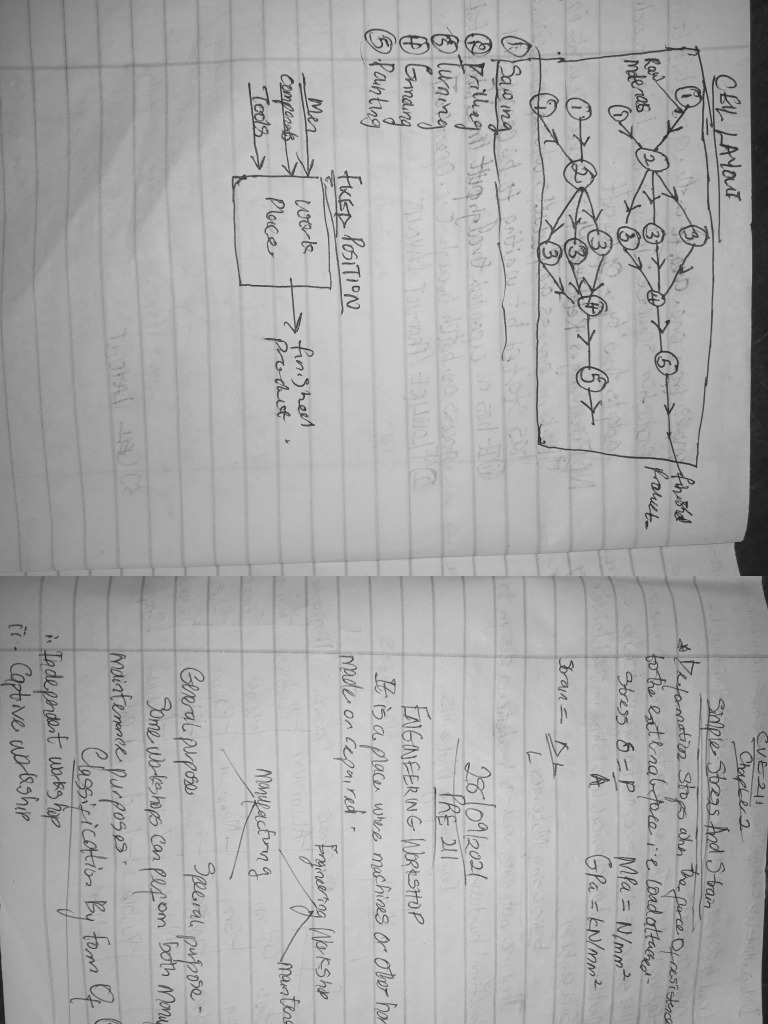 CELL LAYOUT
①
Raw
materials
① ② ③
③ ④ ⑥
③
finished
product
① ② ③
③ ④ ⑤
① ③
① Sawing
② Drilling
③ Turning
④ Grinding
⑤ Painting
FIXED POSITION
Men
components
Tools
Work
Place
finished
product.
CVE 211
Chapter 2
Simple Stress And Strain
* Deformation stops when the force of resistance
to the external force i.e load attached.
Stress = P MPa = N/mm²
A GPa = kN/mm²
Strain = ΔL
L
28/09/2021
PRE 211
ENGINEERING WORKSHOP
It is a place were machines or other
made or repaired.
Engineering Workshop
Manufacturing
General purpose Special purpose
Some workshops can perform both
maintenance purposes.
Classification By form Of
i. Independent workshop
ii. Captive workshop